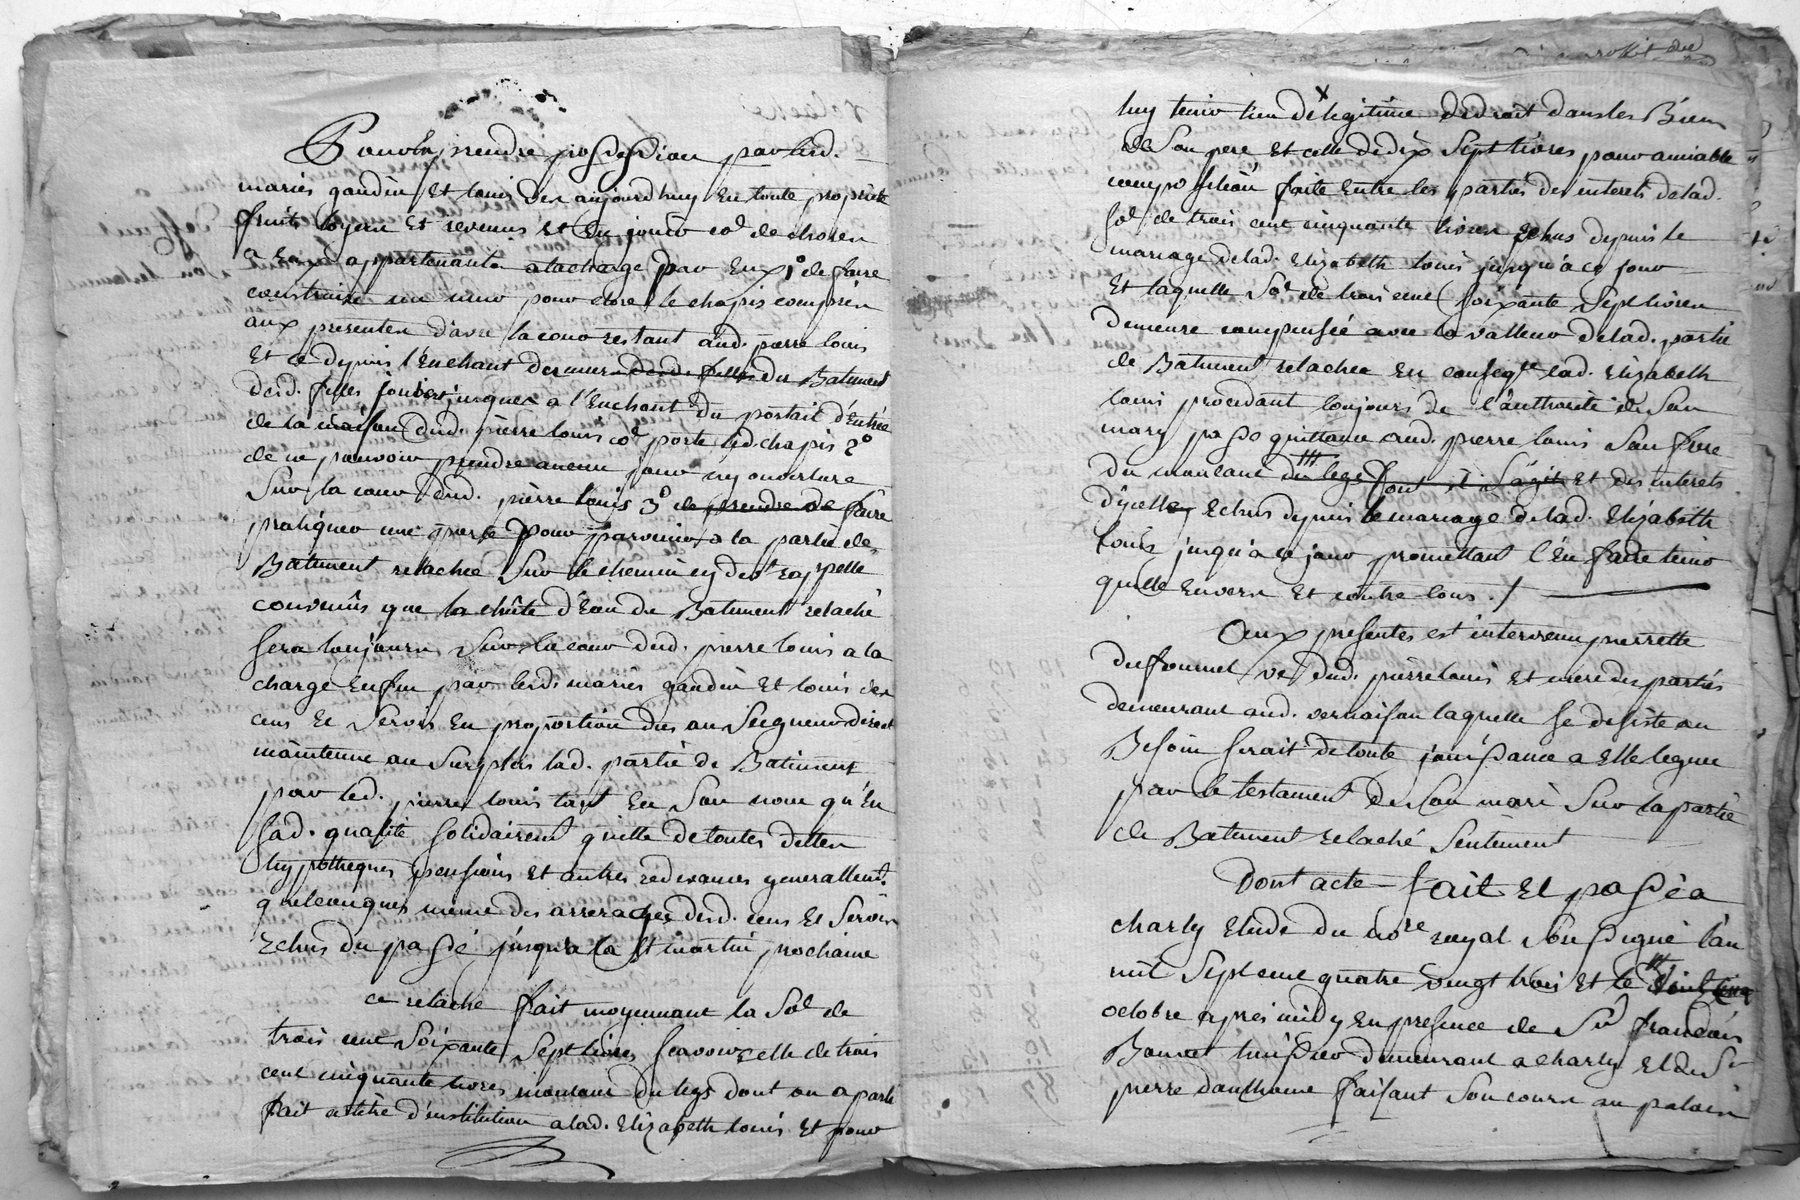 Pour En prendre possession par lesd.
mariés gaudin Et louis des aujourd'huy En toute propriété
fruits loyers Et revenus Et En jouir co.e de choses
a Eux appartenante a la charge par Eux 1.o de faire
construire un mur pour clore le chapis compris
aux presentes d'avec la cour restant aud. pierre louis
Et ce depuis l'Enchant dernier desd. filles du Batiment
desd. filles jusques a l'Enchant du portail d'Entrée
de la maison dud. pierre louis co.e porte led. chapis 2.o
de ne pouvoir prendre aucun jour ny ouverture
Sur la cour dud. pierre louis 3.o de prendre de faire
pratiquer une porte pour parvenir a la partie de
Batiment relachée Sur le chemin cy dev.t rappellé
convenus que la chûte d'Eau du Batiment relaché
sera toujours Sur la cour dud. pierre louis a la
charge Enfin par lesd. mariés gaudin Et louis des
cens Et Servis En proportion dus au Seigneur direct
maintenue au Surplus lad. partie de Batiment
par led. pierre louis tant En Son nom qu'En
sad. qualité solidairem.t quitte de toutes dettes
hypotheques pensions Et autres redevances generallem.t
quelconques même des arrerages desd. cens Et Servis
Echus du passé jusqu'a la St martin prochaine
ce relaché fait moyennant la So.e de
trois cent Soixante Sept livres scavoir celle de trois
cent cinquante livres montant du legs dont on a parlé
fait a titre d'institution a lad. Elizabeth louis Et pour
luy tenir lieu de legitime de droit dans les Biens
de Son pere Et celle de dix Sept livres pour amiable
composition faite Entre les parties des interets de lad.
So.e de trois cent cinquante livres Echus depuis le
mariage de lad. Elizabeth louis jusqu'a ce jour
Et laquelle So.e de trois cent soixante Sept livres
demeure compensée avec la valleur de lad. partie
de Batiment relachée En conseq.ce lad. Elizabeth
louis procedant toujours de l'authorité de Son
mary passe quittance aud. pierre louis Son frere
du montant du legs dont il S'agit Et des interets
d'icelle Echus depuis le mariage de lad. Elizabeth
louis jusqu'a ce jour promettant l'En faire tenir
quitte Envers Et contre tous ./
Aux presentes est intervenu pierrette
dufournel v.e dud. pierre louis Et mere des parties
demeurant aud. vernaison laquelle se desiste au
Besoin serait de toute jouissance a Elle leguée
par le testament de Son mari Sur la partie
de Batiment relaché Seulement
Dont acte fait Et passé a
charly Etude du no.re royal Soussigné l'an
mil Sept cent quatre vingt trois Et le vint cinq
octobre apres midy En presence de S.r francois
Bouvet huissier demeurant a charly Et du S.r
pierre dauthaine faisant Son cours au palais